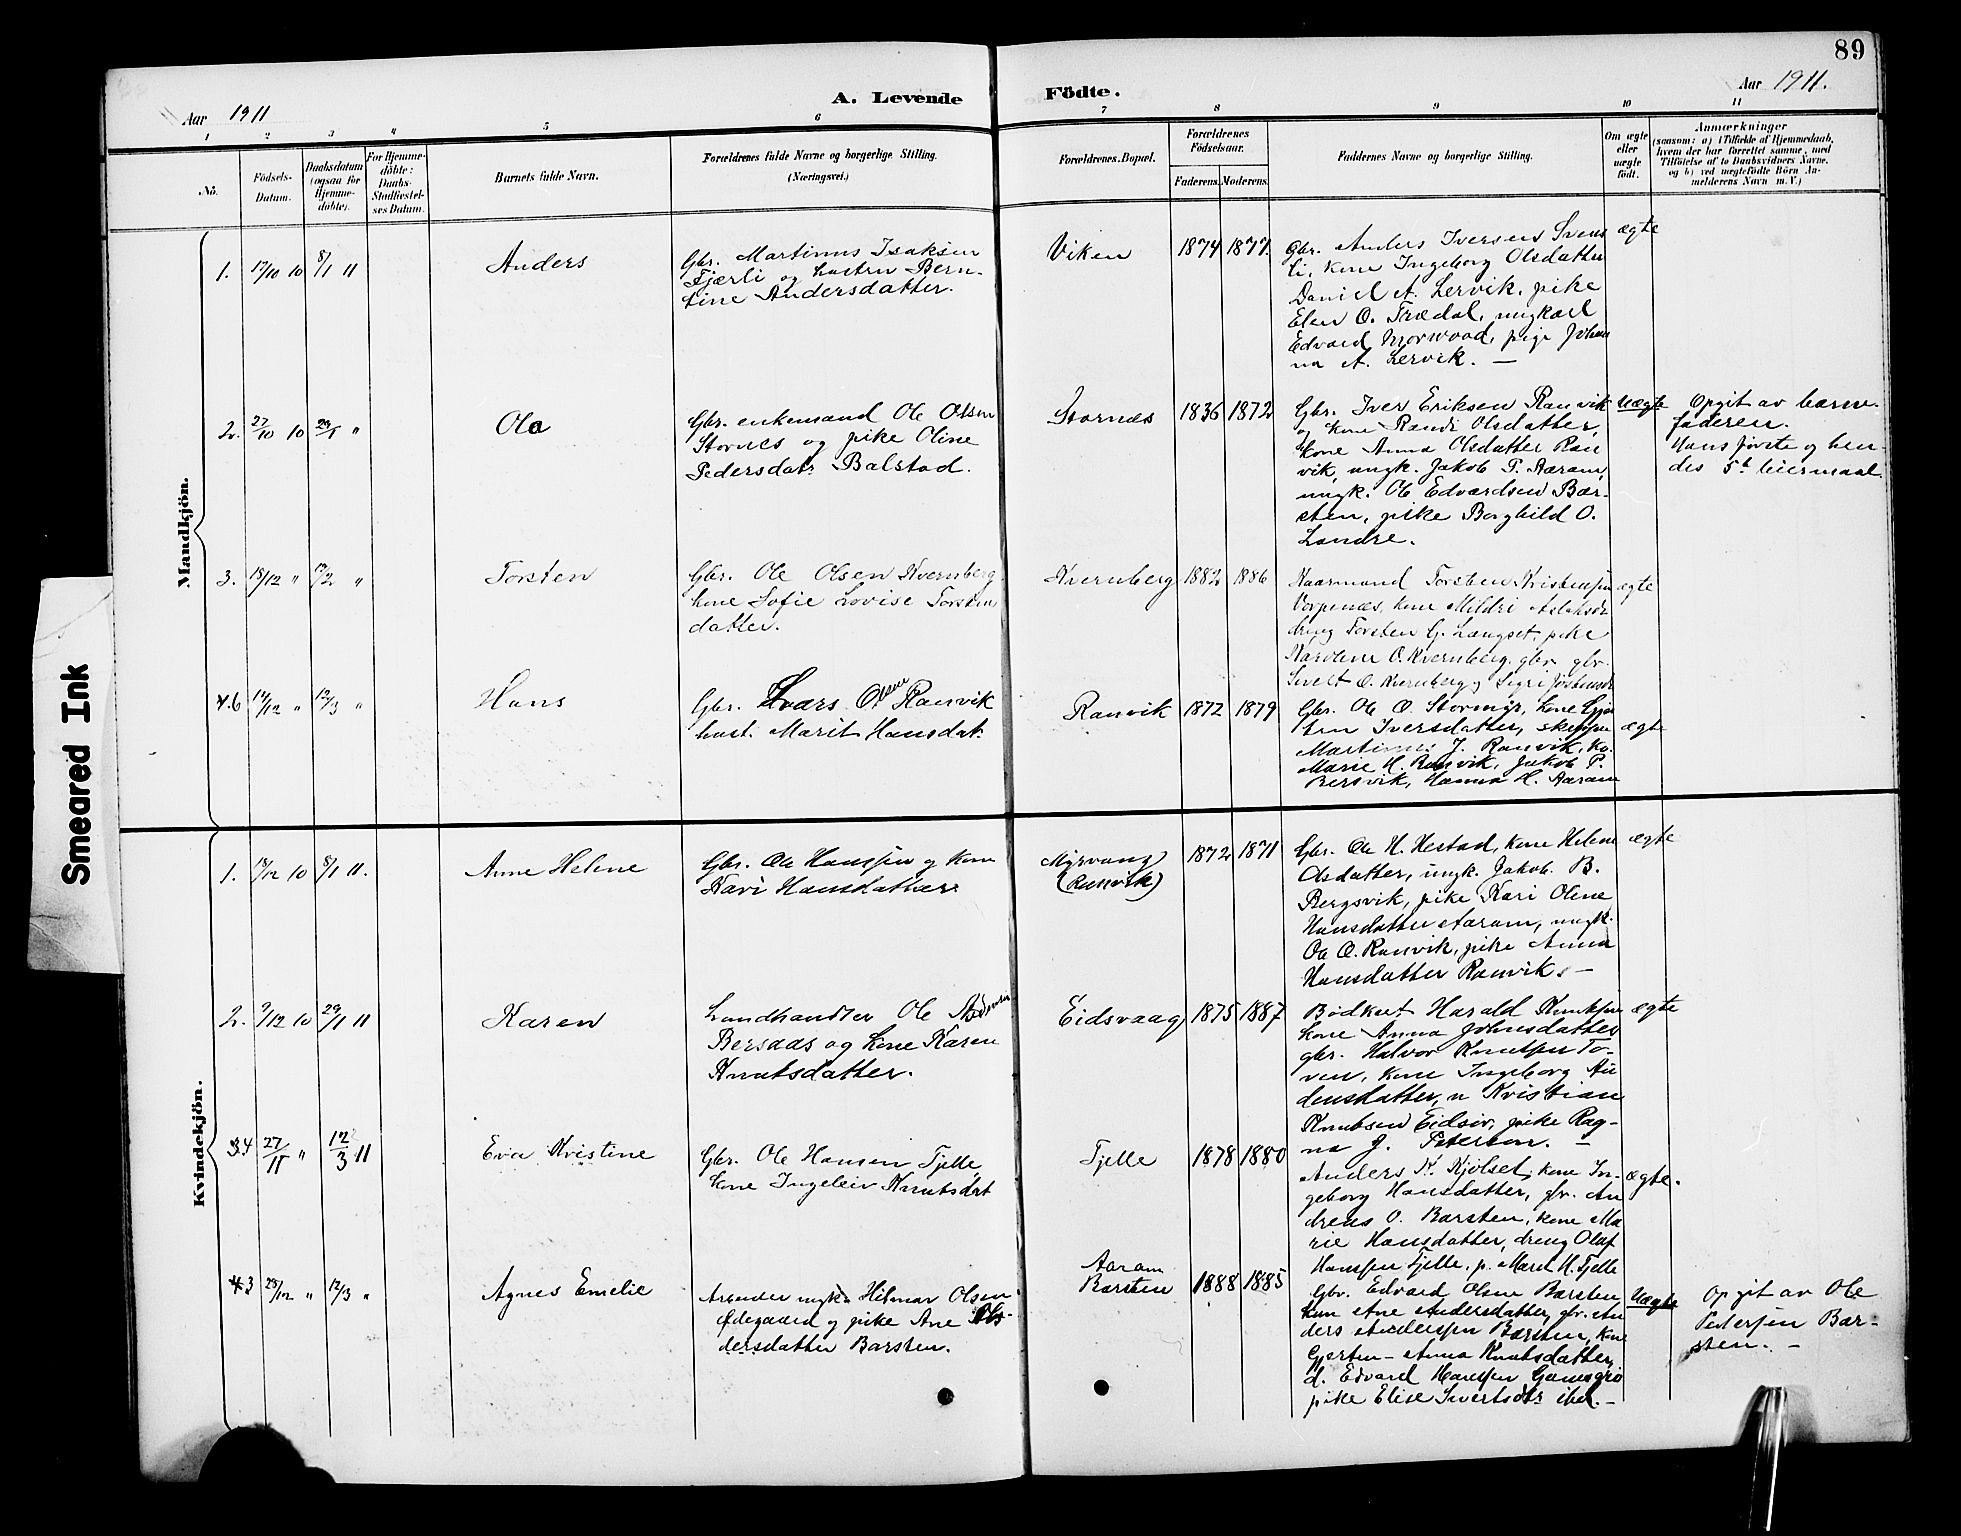 89
Aar 1911
A. Levende
Födte.
Aar 1911.
1 2 3 4 5 6 7 8 9 10 11
No.
Födsels-
Datum.
Daabsdatum
(ogsaa for
Hjemme-
döbte).
For Hjemme-
döbte:
Daabs-
Stadfæstel-
ses Datum.
Barnets fulde Navn.
Forældrenes fulde Navne og borgerlige Stilling.
(Næringsvei.)
Forældrenes Bopæl.
Forældrenes
Födselsaar.
Faderens. Moderens.
Faddernes Navne og borgerlige Stilling.
Om ægte
eller
uægte
födt.
Anmærkninger
(saasom: a) i Tilfælde af Hjemmedaab,
hvem der har forrettet samme, med
Tilföielse af to Daabsvidners Navne,
og b) ved uægtefödte Börn An-
melderens Navn m. V.)
Mandkjön.
1. 17/10 10 8/1 11
Anders
Gbr. Martinus Isaksen
Fjærli og hustru Bern-
tine Andersdatter.
Viken
1874 1877.
Gbr. Anders Iversen Svens
li, kone Ingeborg Olsdatter
Daniel A. Lervik, pike
Elen O. Trædal, ungkarl
Edvard Morwood, pige Johan
na A. Lervik. —
ægte
2. 27/10 10 29/1 "
Ola
Gbr. enkemand Ole Olsen
Stornes og pike Oline
Pedersdatr Balstad.
Stornæs
1836 1872
Gbr. Iver Eriksen Ranvik
og kone Randi Olsdatter,
kone Anna Olsdatter Ran
vik, ungk. Jakob P. Aaram,
ungk. Ole Edvardsen Bar-
sten, pike Borghild O.
Landre.
Uægte
Opgit av barne-
faderen.
Hans første og hen-
des 5te leiermaal.
3. 18/12 " 12/2 "
Torsten
Gbr. Ole Olsen Kvernberg
kone Sofie Lovise Torsten
datter.
Kvernberg
1882 1886
Kaarmand Torsten Kristensen
Vorpenæs, kone Mildri Aslaksdr
dreng Torsten G. Længset, pike
Karolene O. Kvernberg, gbr. gbr.
Sivert O. Kvernberg, Sigri Jostensdr
ægte
4.6 14/12 " 12/3 "
Hans
Gbr. Ivars Olsen Ranvik
hust. Marit Hansdat.
Ranvik
1872 1879
Gbr. Ole O. Stormyr, kone Gjer
tru Iversdatter, skipper
Martinus J. Ranvik, ko.
Marie H. Ranvik, Jakob P.
Bersvik, Hanna H. Aaram
ægte
Kvindekjön.
1. 18/12 10 8/1 11.
Anne Helene
Gbr. Ole Hanssen og kone
Kari Hansdatter.
Myrvang
(Ranvik)
1872 1871
Gbr. Ole H. Hestad, kone Helene
Olsdatter, ungk. Jakob. B.
Bergsvik, pike Kari Oline
Hansdatter Aaram, ungk.
Ole O. Ranvik, pike Anna
Hansdatter Ranvik. —
ægte
2. 9/12 10 29/1 11
Karen
Landhandler Ole
Bersaas og kone Karen
Knutsdatter.
Eidsvaag
1875 1887
Bødkert Harald Knutsen
kone Anna Johnsdatter
gbr. Halvor Knutsen To-
ven, kone Ingeborg Au
densdatter, u Kristian
Knutsen Eidsv, pike Rag-
na J. Peterson. —
ægte
34 27/11 " 12/3 11
Eva Kristine
Gbr. Ole Hansen Tjelle
kone Ingeleiv Knutsdat
Tjelle
1878 1880
Anders K. Kjølset, kone In-
geborg Hansdatter, gbr. An
dreas O. Barsten, kone Ma
rie Hansdatter, dreng Olaf
Hanssen Tjelle, p. Maret H. Tjelle
ægte.
43 29/12 " 12/3 "
Agnes Emelie
Arbeider ungk Hilmar Olsen
Ødegaard og pike Ane An-
dersdatter Barsten.
Aaram
Barsten
1888 1885
Gbr. Edvard Olsen Barsten
kone Ane Andersdatter, gbr. An
ders Anderssen Barsten, kone
Gjerten- Anna Knutsdatter,
d. Edvard Hanssen
pike Elise Sivertsdtr ibd. —
Uægte
Opgit av Ole
Pedersen Bar-
sten. —
Smeared Ink